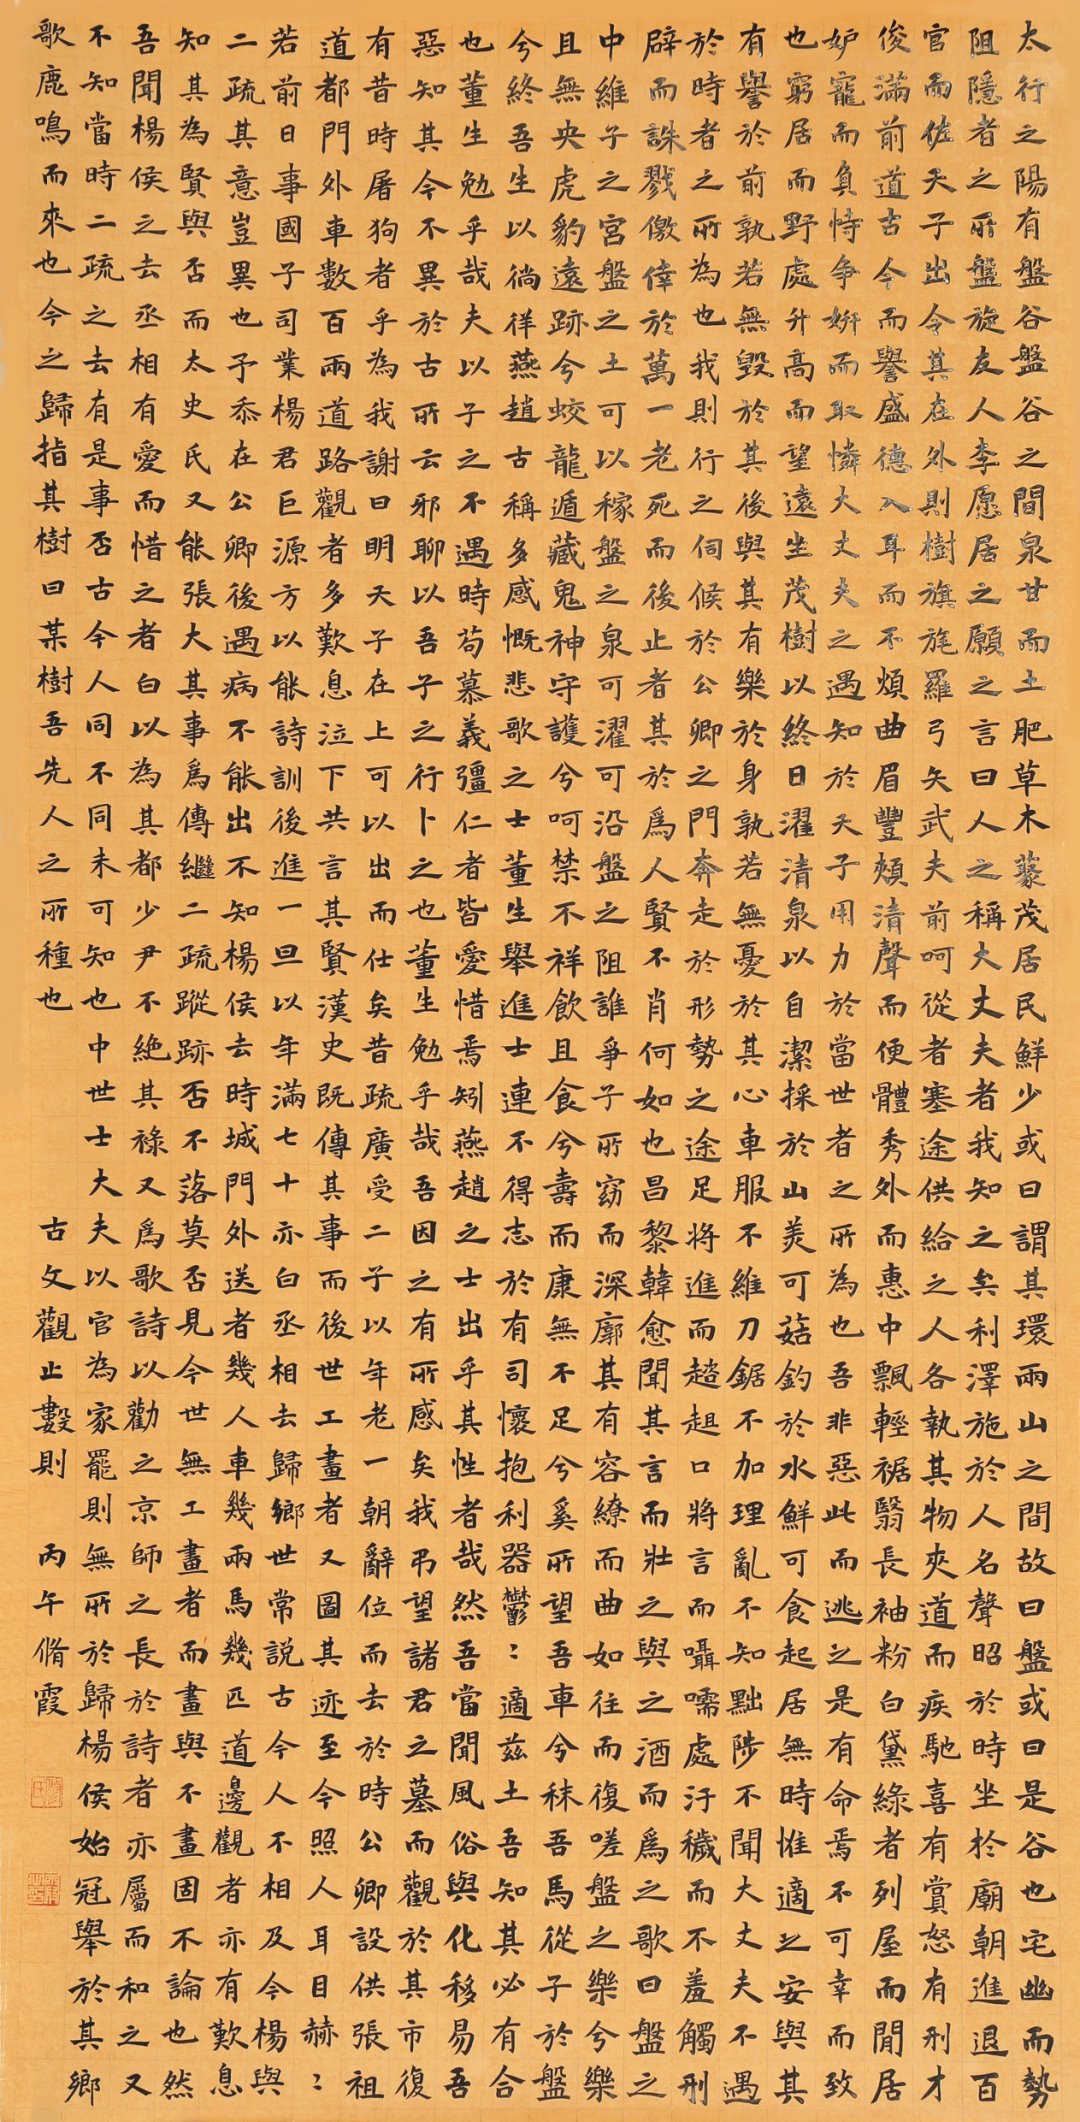 太行之陽有盤谷盤谷之間泉甘而土肥草木藂茂居民鮮少或曰謂其環兩山之間故曰盤或曰是谷也宅幽而勢
阻隱者之所盤旋友人李愿居之願之言曰人之稱大丈夫者我知之矣利澤施於人名聲昭於時坐於廟朝進退百
官而佐天子出令其在外則樹旗旄羅弓矢武夫前呵從者塞途供給之人各執其物夾道而疾馳喜有賞怒有刑才
俊滿前道古今而譽盛德入耳而不煩曲眉豐頰清聲而便體秀外而惠中飄輕裾翳長袖粉白黛綠者列屋而閒居
妒寵而負恃争妍而取憐大丈夫之遇知於天子用力於當世者之所為也吾非惡此而逃之是有命焉不可幸而致
也窮居而野處升高而望遠坐茂樹以終日濯清泉以自潔採於山美可茹釣於水鮮可食起居無時惟適之安與其
有譽於前孰若無毀於其後與其有樂於身孰若無憂於其心車服不維刀鋸不加理亂不知黜陟不聞大丈夫不遇
於時者之所為也我則行之伺候於公卿之門奔走於形勢之途足將進而趑趄口將言而囁嚅處汙穢而不羞觸刑
辟而誅戮儌倖於萬一老死而後止者其於爲人賢不肖何如也昌黎韓愈聞其言而壯之與之酒而爲之歌曰盤之
中維子之宮盤之土可以稼盤之泉可濯可沿盤之阻誰爭子所窈而深廓其有容繚而曲如往而復嗟盤之樂兮樂
且無央虎豹遠跡兮蛟龍遁藏鬼神守護兮呵禁不祥飲且食兮壽而康無不足兮奚所望吾車兮秣吾馬從子於盤
兮終吾生以徜徉燕趙古稱多感慨悲歌之士董生舉進士連不得志於有司懷抱利器鬱〻適茲土吾知其必有合
也董生勉乎哉夫以子之不遇時苟慕義彊仁者皆愛惜焉矧燕趙之士出乎其性者哉然吾當聞風俗與化移易吾
惡知其今不異於古所云邪聊以吾子之行卜之也董生勉乎哉吾因之有所感矣我弔望諸君之墓而觀於其市復
有昔時屠狗者乎為我謝曰明天子在上可以出而仕矣昔疏廣受二子以年老一朝辭位而去於時公卿設供張祖
道都門外車數百兩道路觀者多歎息泣下共言其賢漢史既傳其事而後世工畫者又圖其迹至今照人耳目赫〻
若前日事國子司業楊君巨源方以能詩訓後進一旦以年滿七十亦白丞相去歸鄉世常説古今人不相及今楊與
二疏其意豈異也予忝在公卿後遇病不能出不知楊侯去時城門外送者幾人車幾兩馬幾匹道邊觀者亦有歎息
知其為賢與否而太史氏又能張大其事爲傳繼二疏蹤跡否不落莫否見今世無工畫者而畫與不畫固不論也然
吾聞楊侯之去丞相有愛而惜之者白以為其都少尹不絕其祿又爲歌詩以勸之京師之長於詩者亦屬而和之又
不知當時二疏之去有是事否古今人同不同未可知也中世士大夫以官為家罷則無所於歸楊侯始冠舉於其鄉
歌鹿鳴而來也今之歸指其樹曰某樹吾先人之所種也 古文觀止數則 丙午脩霞